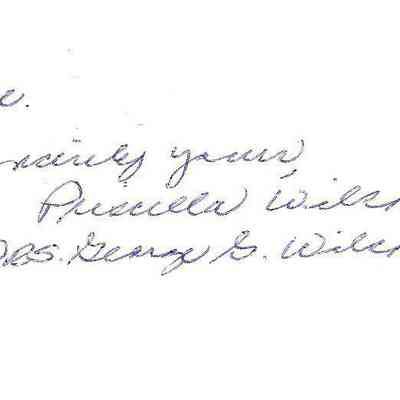 e.
ncerely yours,
Priscilla Wilc
Mrs. George G. Wilc